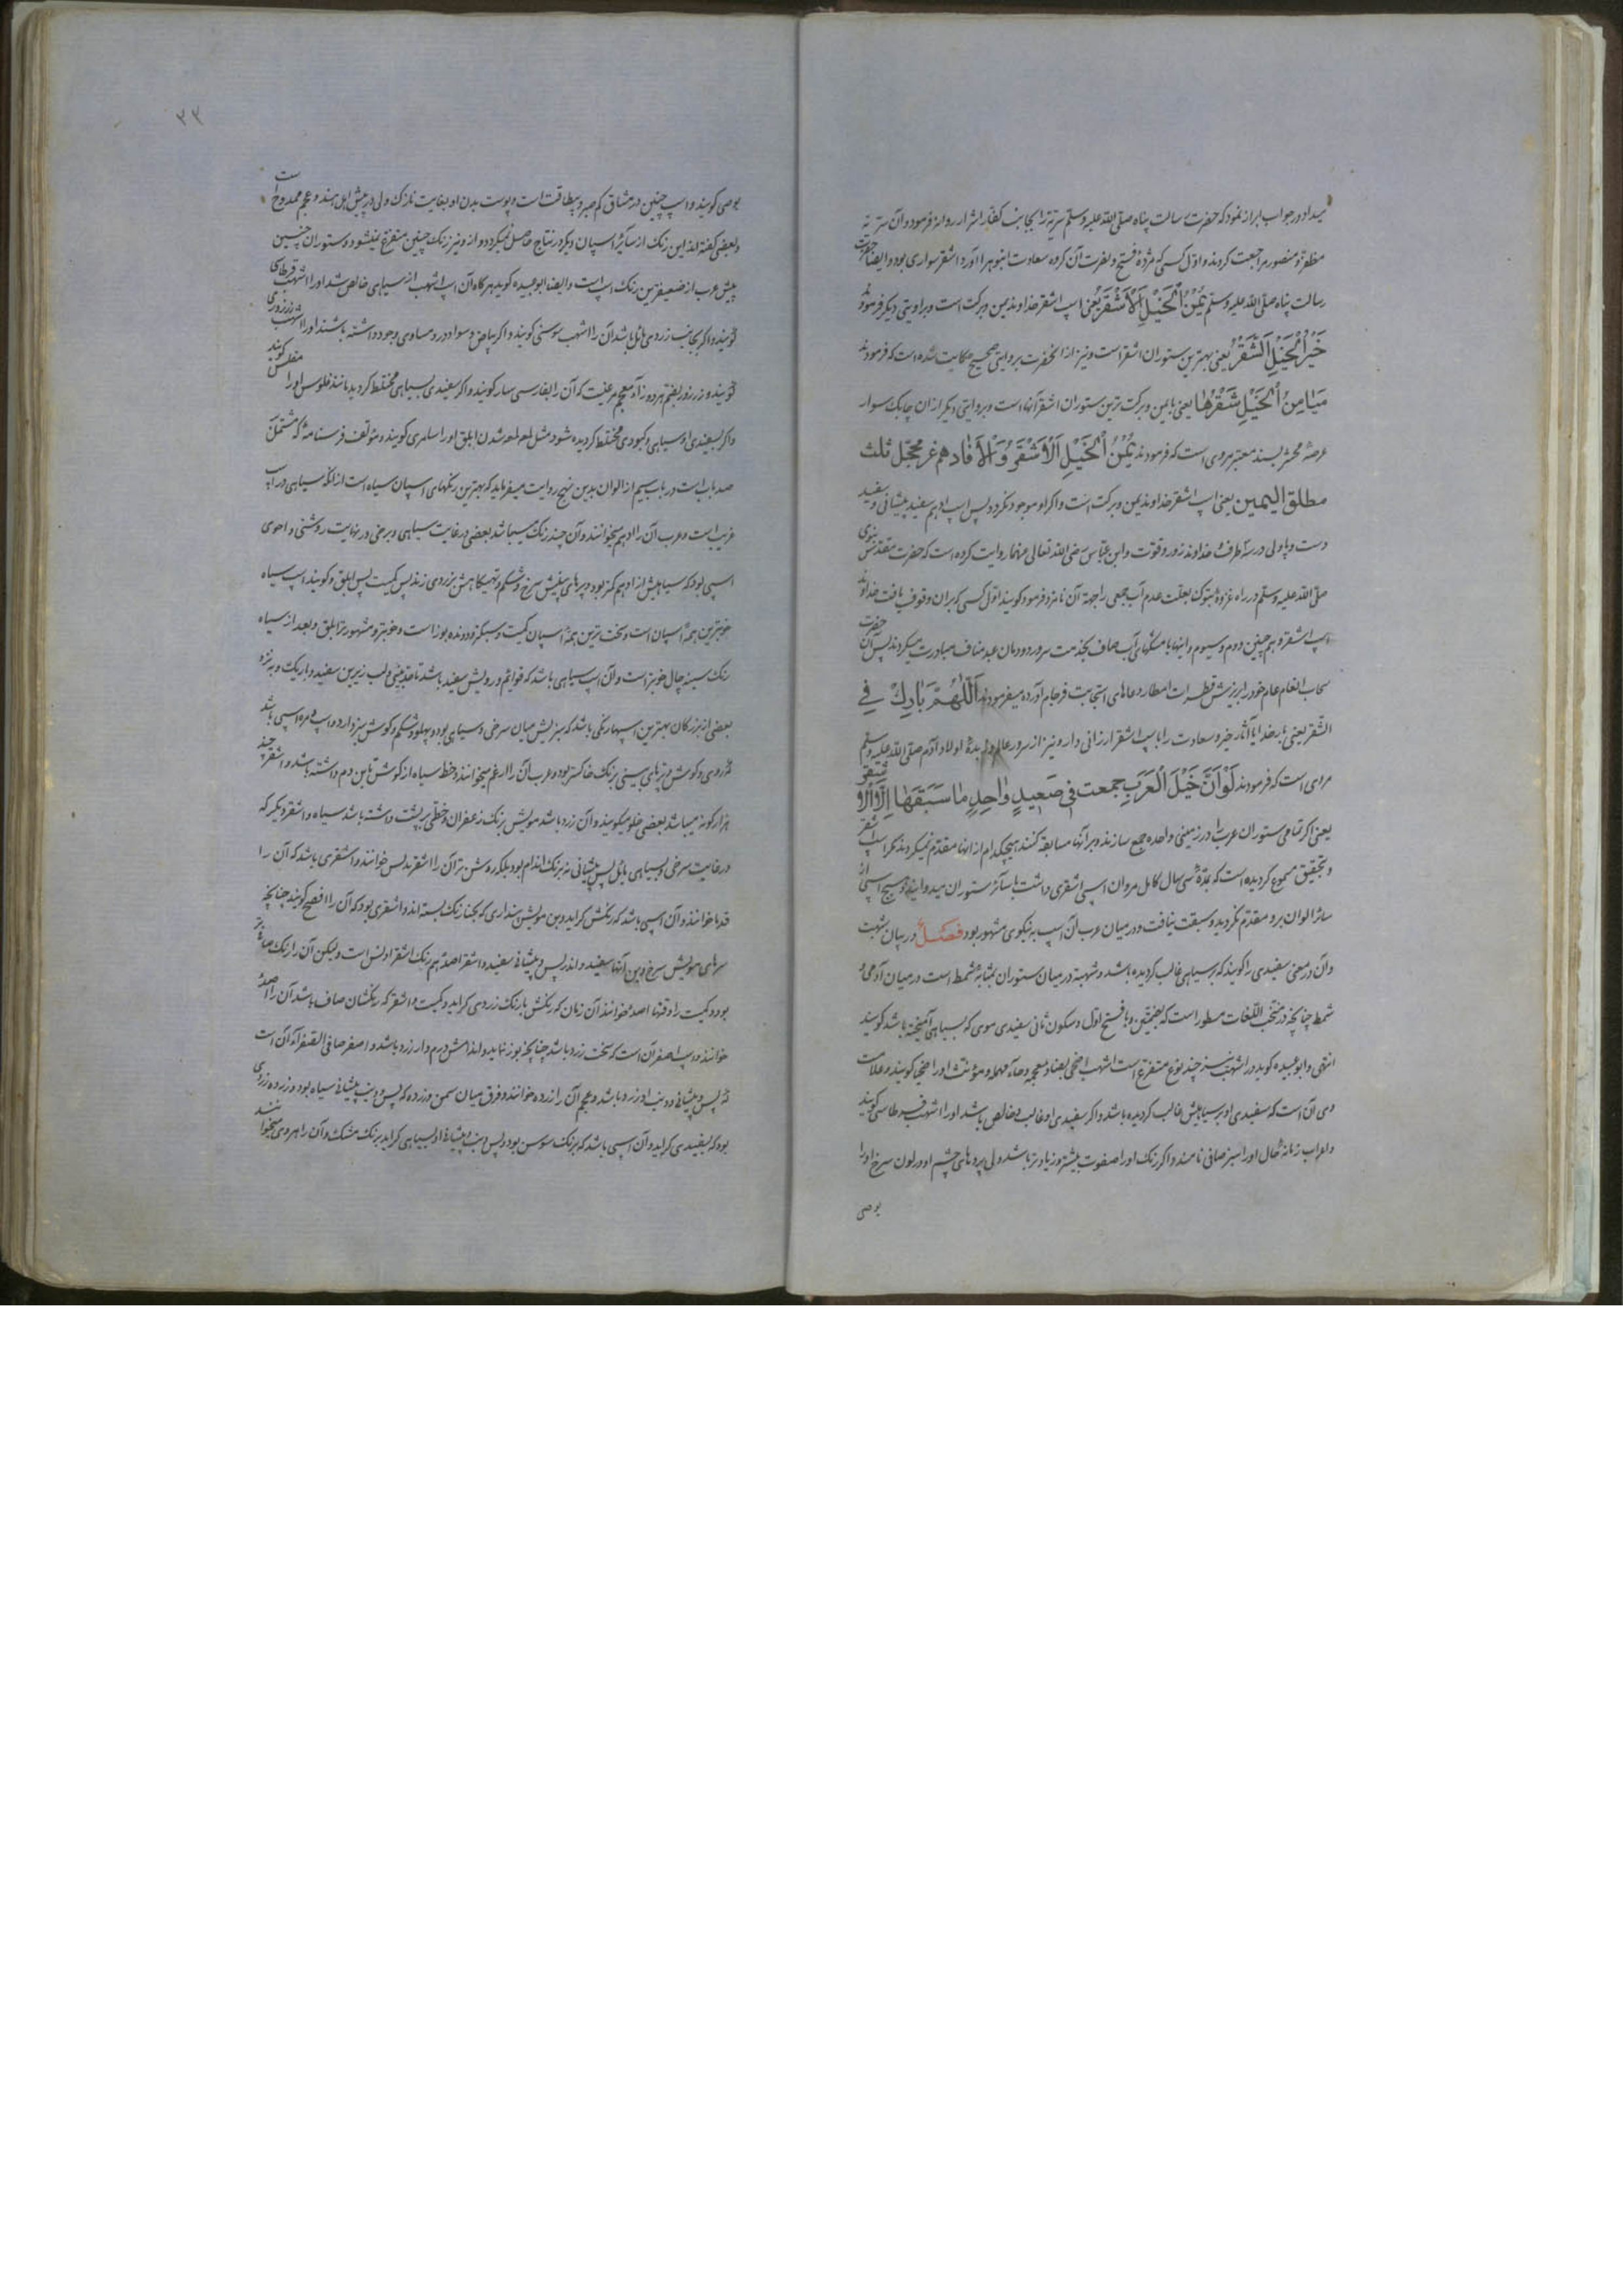 میداد در جواب ابراز نمود که حضرت رسالت پناه صلی الله علیه وسلم سریه را بجانب کفار اشرار روانه فرمود و آن سریه
مظفر و منصور مراجعت کردند و اول کسی که مژدهٔ فتح و نصرت آن کروه سعادت انبوه را آورد اشقر سواری بود و ایضا حضرت
رسالت پناه صلی الله علیه وسلم یُمْنُ الْخَیْلِ الْاَشْقَرُ یعنی اسپ اشقر خداوند یمن و برکت است و براویتی دیکر فرمودند
خَیْرُ الْخَیْلِ الشَّقْرُ یعنی بهترین ستوران اشقر است و نیز از آنحضرت بروایتی صحیح حکایت شده است که فرمودند
مَیَامِنُ الْخَیْلِ شَقْرُهَا یعنی با یمن و برکت ترین ستوران اشقر آنها است و بروایتی دیکر از ان چابک سوار
عرصهٔ محشر بسند معتبر مروی است که فرمودند یُمْنُ الْخَیْلِ الْاَشْقَرُ وَ الْاَفَادهم غر محجّل ثلث
مطلق الیمین یعنی اسپ اشقر خداوند یمن و برکت است و اکر او موجود نکردد پس اسپ ادهم سفید پیشانی و سفید
دست و پا ولی در سه طرف خداوند زور و قوت و ابن عباس رضی الله تعالی عنهما روایت کرده است که حضرت مقدس نبوی
صلی الله علیه وسلم در راه غزوهٔ تبوک بعلت عدم آب جمعی را جهة آن نامزد فرمود کویند اول کسی که بران وقوف یافت خداوند
اسپ اشقر و هم چنین دوم و سیوم و اینها با مشکهای آب صاف بخدمت سرور دودمان عبد مناف مبادرت میکردند پس آن حضرت
سحاب انعام عام خود را بریزش قطرات امطار دعاهای استجابت فرجام آورده میفرمودند اَللّٰهُمَّ بَارِكْ فِي
الشقر یعنی بار خدایا آثار خیر و سعادت را با اسپ اشقر ارزانی دار و نیز از سرور عالم و زبدهٔ اولاد آدم صلی الله علیه وسلم
مروی است که فرمودند لَوْ اَنَّ خَیْلَ الْعَرَبِ جمعت فی صَعِیدٍ وَاحِدٍ مَا سَبَقَهَا اِلَّا الاشقر
یعنی اکر تمامی ستوران عرب را در زمینی واحده جمع سازند و بر آنها مسابقه کنند هیچکدام از اینها مقدم نمیکردند مکر اسپ اشقر
و بتحقیق مسموع کردیده است که مدة سی سال کامل مروان اسپ اشقری داشت با سائر ستوران میدوانید و هیچ اسپی از
سائر الوان برو مقدم نکردید و سبقت نیافت و در میان عرب آن اسپ به نکوی مشهور بود فصل در بیان شهبت
وآن در معنی سفیدی را کویند که بر سیاهی غالب کردیده باشد و شهبة در میان ستوران بمثابهٔ شمط است در میان آدمی و
شمط چنانچه در منتخب اللغات مسطور است که بفتحتین و با فتح اول و سکون ثانی سفیدی موی که بسیاهی آمیخته باشد کویند
انتهی و ابو عبیده کوید در اشهب نیز چند نوع متفرع است اشهب اضحی بضاد معجمه و حاء مهمله و مؤنث او را ضحیا کویند و علامت
وی آن است که سفیدی او بر سیاهیش غالب کردیده باشد و اکر سفیدی او غالب و خالص باشد او را اشهب قرطاسی کویند
و اعراب زمانهٔ حال او را سبز صافی نامند و اکر رنک او را صفوت بیشتر و زیادتر باشد ولی پردهای چشم او در لون سرخ او را
بوصی
۳۳
بوصی کویند و اسپ چنین در مشاق کم صبر و بیطاقت است و پوست بدن او بغایت نازک ولی در پیش اهل هند و عجم ممدوح است
و بعضی کفته اند این رنک از سائر اسپان دیکر در نتایج حاصل نمیکردد و از و نیز رنک چنین متفرع نمیشود و ستوران چنین
پیش عرب از ضعیفترین رنک اسپ است و ایضا ابو عبیده کوید هر کاه آن اسپ اشهب از سیاهی خالص شد او را اشهب قرطاسی
کویند و اکر بجانب زردی مائل باشد آن را اشهب سوسنی کویند و اکر بیاض و سواد در و مساوی وجود داشته باشند او را اشهب زرزوری
کویند و زرزور بضم هر دو زاء معجمه مرغیست که آن را بفارسی سار کویند و اکر سفیدی بسیاهی مختلط کردید مانند فلوس او را مفلس کویند
و اکر بسفیدی او سیاهی و کبودی مختلط کردیده شود مثل لعلع شدن ابلق او را سامری کویند و مؤلف فرسنامهٔ که مشتمل
صد باب است در باب سیم از الوان بدین نهج روایت میفرماید که بهترین رنکهای اسپان سیاه است از انکه سیاهی در اسپ
غریب است و عرب آن را ادهم میخوانند و آن چند رنک میباشد بعضی در غایت سیاهی و برخی در نهایت روشنی و احوی
اسپی بود که سیاهیش از ادهم کمتر بود و پرهای بینیش سرخ و شکم و تهیکاهش بزردی زند پس کمیت پس ابلق و کویند اسپ سیاه
خوبترین همهٔ اسپان است و سخت ترین همهٔ اسپان کمیت و سبکرو و دونده بوز است و خوبتر و مشهورتر ابلق و بعد از سیاه
رنک سینه چال خوبتر است و آن اسپ سیاهی باشد که قوائم و رویش سفید باشد تا حد بینی و لب زیرین سفید و باریک و نزد
بعضی از بزرکان بهترین اسپها رنکی باشد که سبزیش میان سرخی و سیاهی بود و پهلو و شکم و کوش سبز دارد و اسپ اسپی باشد
که روی و کوش و پرهای بینی برنک خاکستر بود و عرب آن را ارغم میخوانند و خط سیاه از کوش تا بن دم داشته باشد و اشقر چند
هزار کونه میباشد بعضی خلو میکویند و آن زرد باشد مویش برنک زعفران و خطی بر پشت داشته باشد سیاه و اشقر دیکر که
در غایت سرخی و بسیاهی مائل پس پیشانی نه برنک اندام بود بلکه روشن تر آن را اشقر بدلس خوانند و اشقری باشد که آن را
قدما خوانند و آن اسپی باشد که رنکش کراید و بن مویش پنداری که بحنا رنک بسته اند و اشقری بود که آن را افضح کویند چنانچه
سرهای مویش سرخ و بن آنها سفید و اندر پس و پیشانی سفید و اشقر اصدة هم رنک اشقر ادلس است ولیکن آن را رنک صافی تر
بود و کمیت را وقتها اصدهٔ خوانند آن زمان که رنکش بارنک زردی کراید و کمیت و اشقر که رنکشان صاف باشد آن را اصدهٔ
خوانند و اسپ اصفر آن است که سخت زرد باشد چنانچه بوز نماید و اندامش درم دار زرد باشد و اصفر صافی الصفراء آن است
که پس و پیشانی و دنب او زرد باشد و عجم آن را زرده خوانند و فرق میان سمن و زرده که پس و دنب پیشانی سیاه بود و زرده زردی
بود که بسفیدی کراید و آن اسپی باشد که برنک سوسن بود و پس دنب و پیشانی او بسیاهی کراید برنک مشک و آن را هروی میخوانند